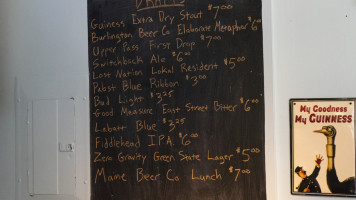 DRAFT
Guiness Extra Dry Stout $7.00
Burlington Beer Co Elaborate Metaphor $6.00
Upper Pass First Drop $7.00
Switchback Ale $6.00
Lost Nation Lokal Resident $5.00
Pabst Blue Ribbon $3.00
Bud Light $3.25
Good Measure East Street Bitter $6.00
Labatt Blue $3.25
Fiddlehead IPA $6.00
Zero Gravity Green State Lager $5.00
Maine Beer Co Lunch $7.00
My Goodness
My GUINNESS